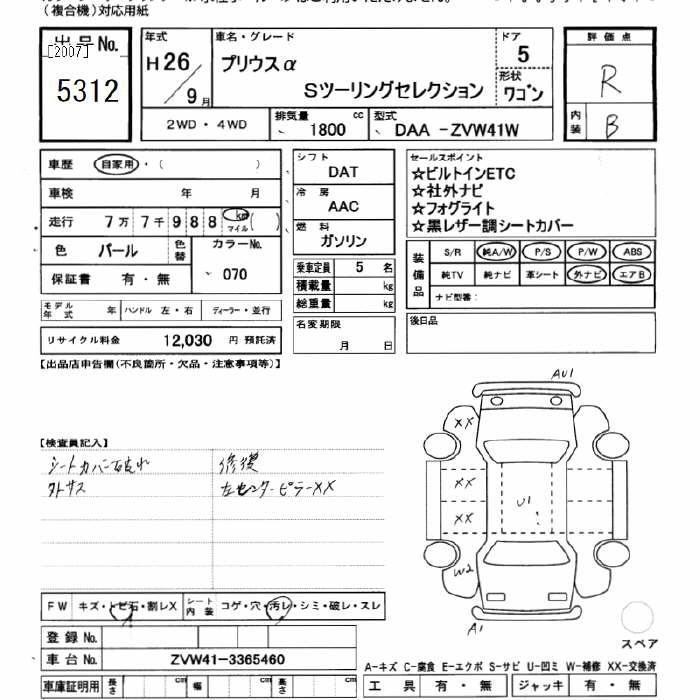 (複合機)対応用紙
出品No.
[2007]
5312
年式
H26/9月
車名・グレード
プリウスα
Sツーリングセレクション
ドア
5
形状
ワゴン
2WD・4WD
排気量
1800 cc
型式
DAA -ZVW41W
評価点
R
内装
B
車歴 自家用・( )
車検 年 月
走行 7万7千988 km マイル ( )
色 パール 色替 カラーNo.
保証書 有・無 070
モデル年式 年 ハンドル 左・右 ディーラー・並行
リサイクル料金 12,030 円 預託済
シフト
DAT
冷房
AAC
燃料
ガソリン
乗車定員 5 名
積載量 kg
総重量 kg
名変期限
月 日
セールスポイント
☆ビルトインETC
☆社外ナビ
☆フォグライト
☆黒レザー調シートカバー
装備品
S/R 純A/W P/S P/W ABS
純TV 純ナビ 革シート 外ナビ エアB
ナビ型番:
後日品
【出品店申告欄(不良箇所・欠品・注意事項等)】
【検査員記入】
シートカバー破れ 修復
外キズ 左センターピラーXX
AU1
XX
XX
XX
U1
W2
A1
スペア
FW キズ・トビ石・割レX シート内装 コゲ・穴・汚レ・シミ・破レ・スレ
登録No.
車台No. ZVW41-3365460
車庫証明用 長さ cm 幅 cm 高さ cm
A-キズ C-腐食 E-エクボ S-サビ U-凹ミ W-補修 XX-交換済
工具 有・無 ジャッキ 有・無